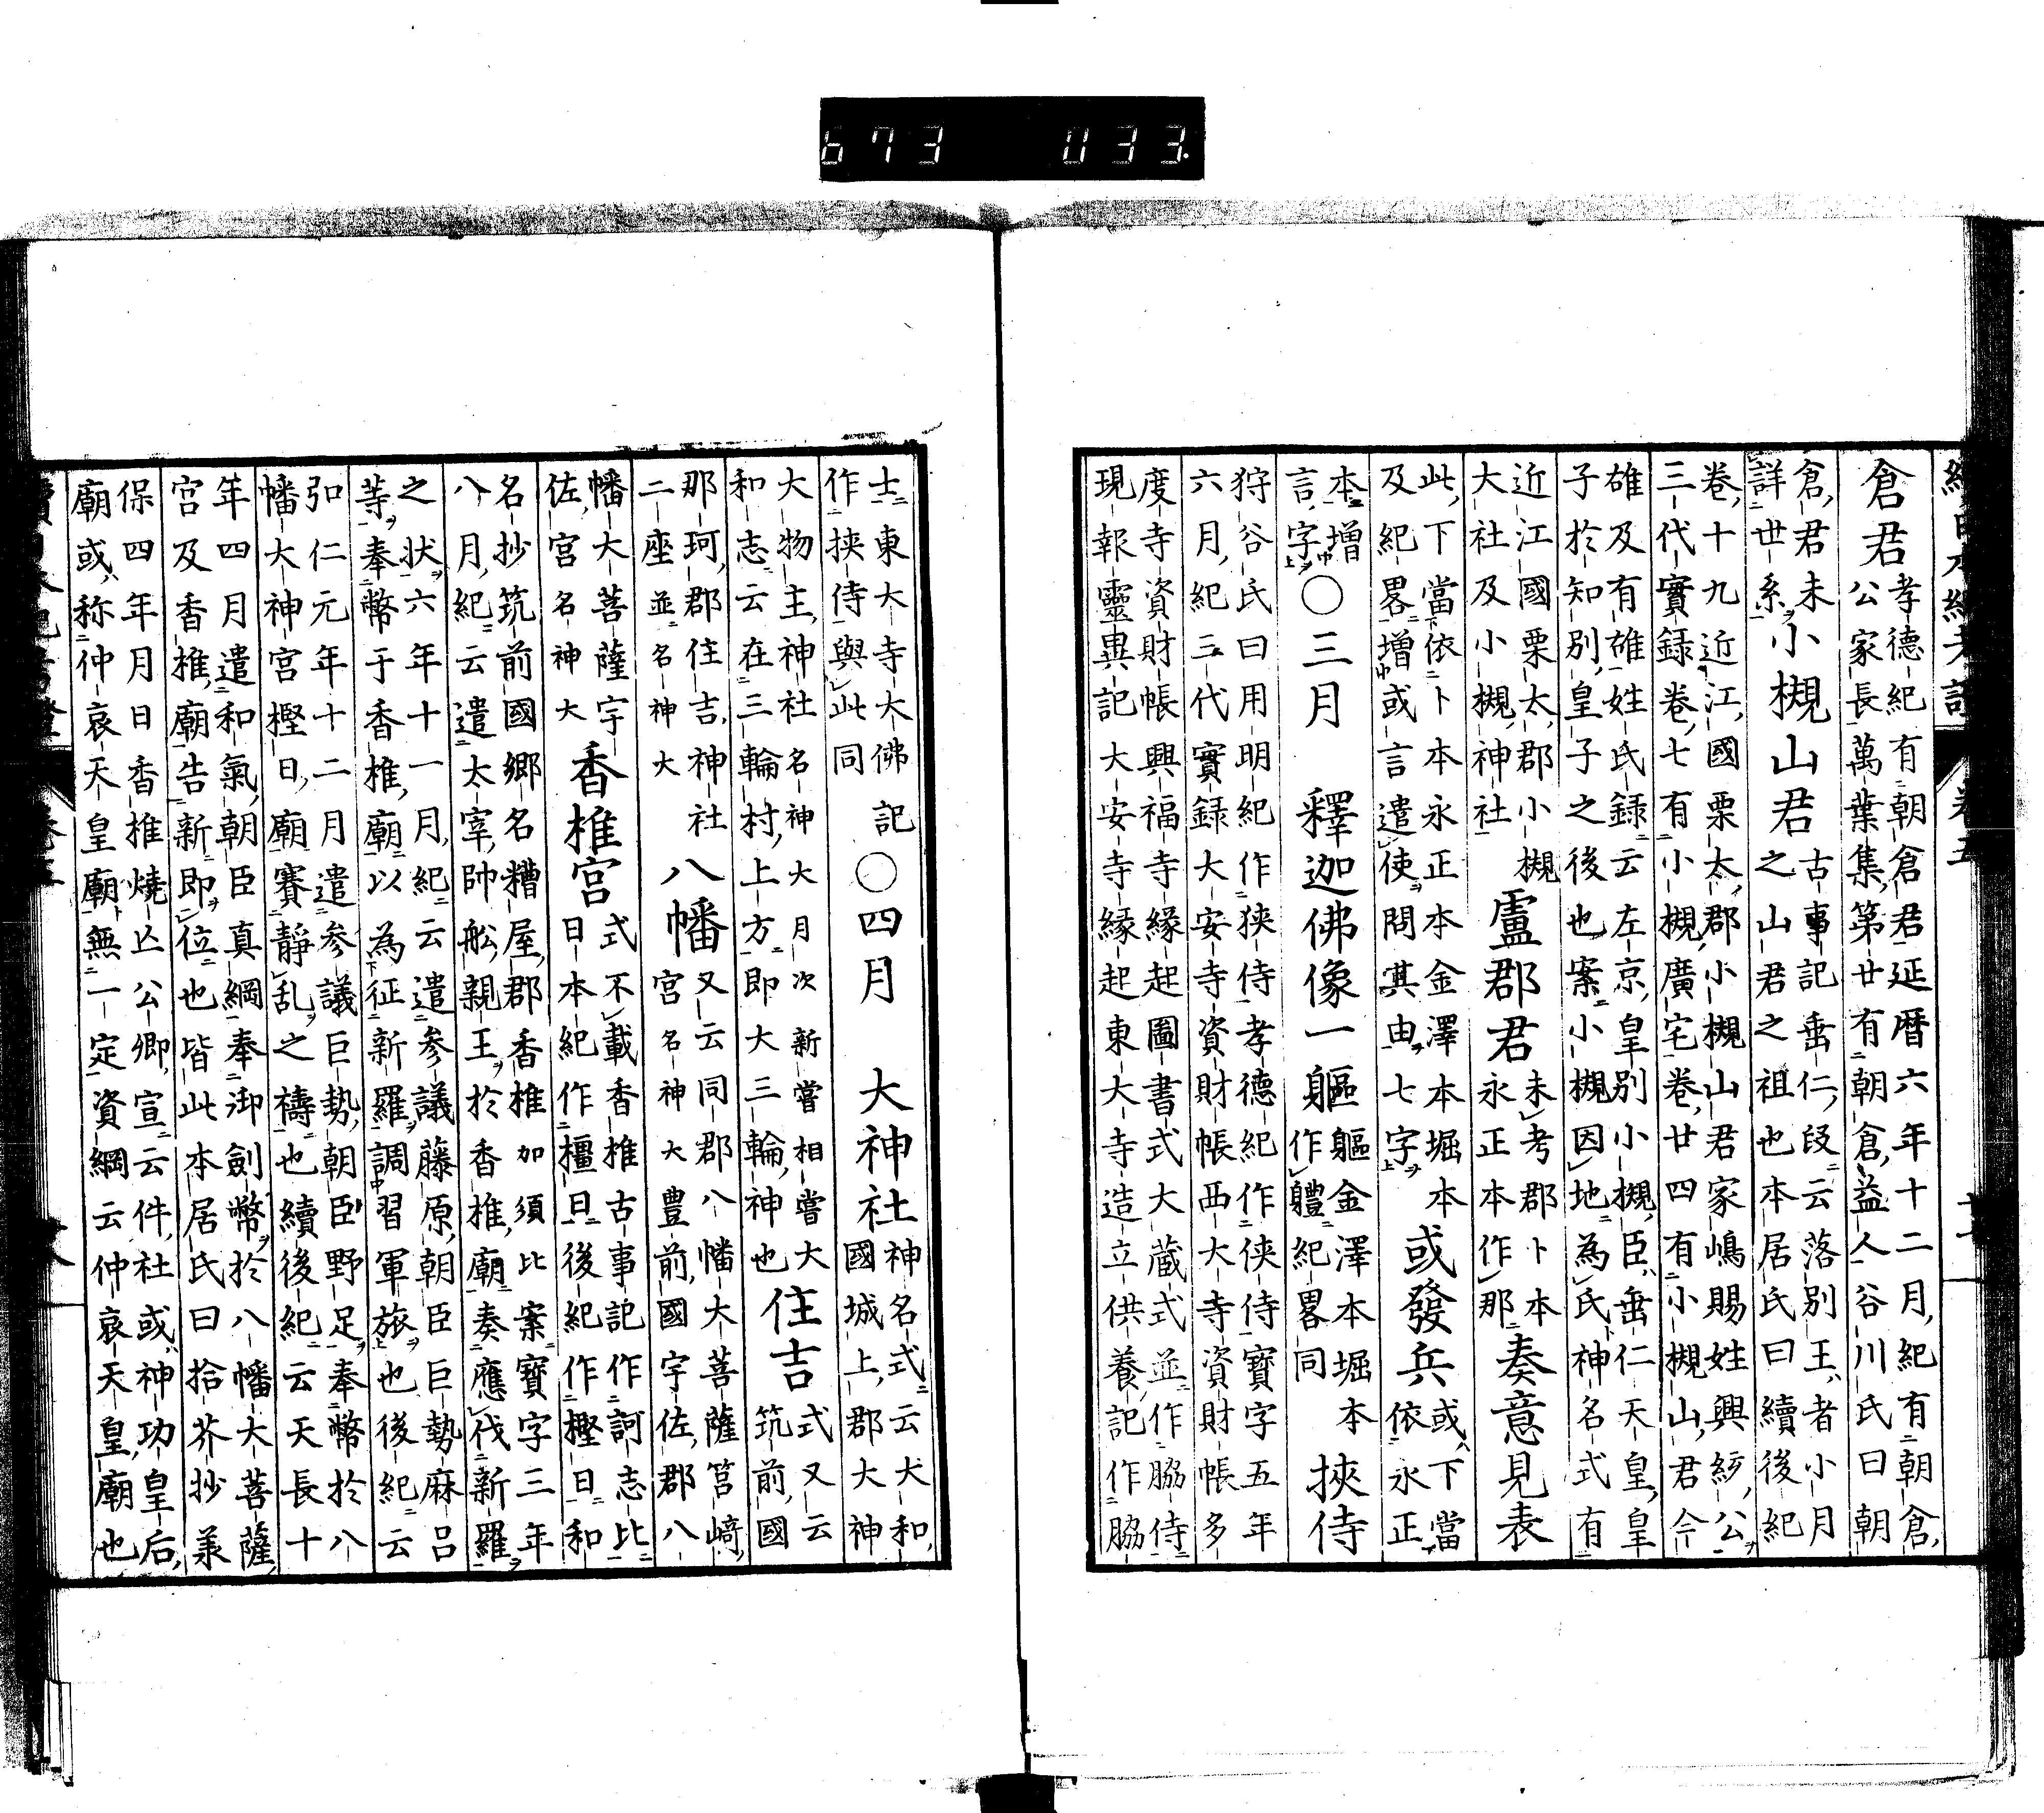 673 033.
倉君 孝德紀有朝倉君延曆六年十二月紀有朝倉
公家長萬葉集第廿有朝倉益人谷川氏曰朝
倉君未詳世系 小槻山君 古事記垂仁段云落別王者小月
之山君之祖也本居氏曰續後紀
卷十九近江國栗太郡小槻山君家嶋賜姓興統公
三代實録卷七有小槻廣宅卷廿四有小槻山君今
雄及有雄姓氏録云左京皇別小槻臣垂仁天皇皇
子於知別皇子之後也案小槻因地為氏神名式有
近江國栗太郡小槻
大社及小槻神社 盧郡君 未考郡卜本
永正本作那 奏意見表
此下當依卜本永正本金澤本堀本
及紀畧增或言遣使問其由七字 或發兵 或下當
依永正
本增
言字 ○三月 釋迦佛像一軀 軀金澤本堀本
作軆紀畧同 挾侍
狩谷氏曰用明紀作狹侍孝德紀作俠侍寶字五年
六月紀三代實録大安寺資財帳西大寺資財帳多
度寺資財帳興福寺緣起圖書式大蔵式並作脇侍
現報靈異記大安寺緣起東大寺造立供養記作脇
士東大寺大佛記
作挾侍與此同 ○四月 大神社 神名式云大和
國城上郡大神
大物主神社名神大月次新嘗相嘗大
和志云在三輪村上方即大三輪神也 住吉 式又云
筑前國
那珂郡住吉神社
二座並名神大 八幡 又云同郡八幡大菩薩筥﨑
宮名神大豊前國宇佐郡八
幡大菩薩宇
佐宮名神大 香椎宮 式不載香椎古事記作訶志比
日本紀作橿日後紀作樫日和
名抄筑前國郷名糟屋郡香椎加須比案寶字三年
八月紀云遣太宰帥舩親王於香椎廟奏應伐新羅
之狀六年十一月紀云遣參議藤原朝臣巨勢麻呂
等奉幣于香椎廟以為征新羅調習軍旅也後紀云
弘仁元年十二月遣参議巨勢朝臣野足奉幣於八
幡大神宮樫日廟賽静乱之禱也續後紀云天長十
年四月遣和氣朝臣真綱奉御劍幣於八幡大菩薩
宮及香椎廟告新即位也皆此本居氏曰拾芥抄兼
保四年月日香椎燒亡公卿宣云件社或神功皇后
廟或称仲哀天皇廟無一定資綱云仲哀天皇廟也